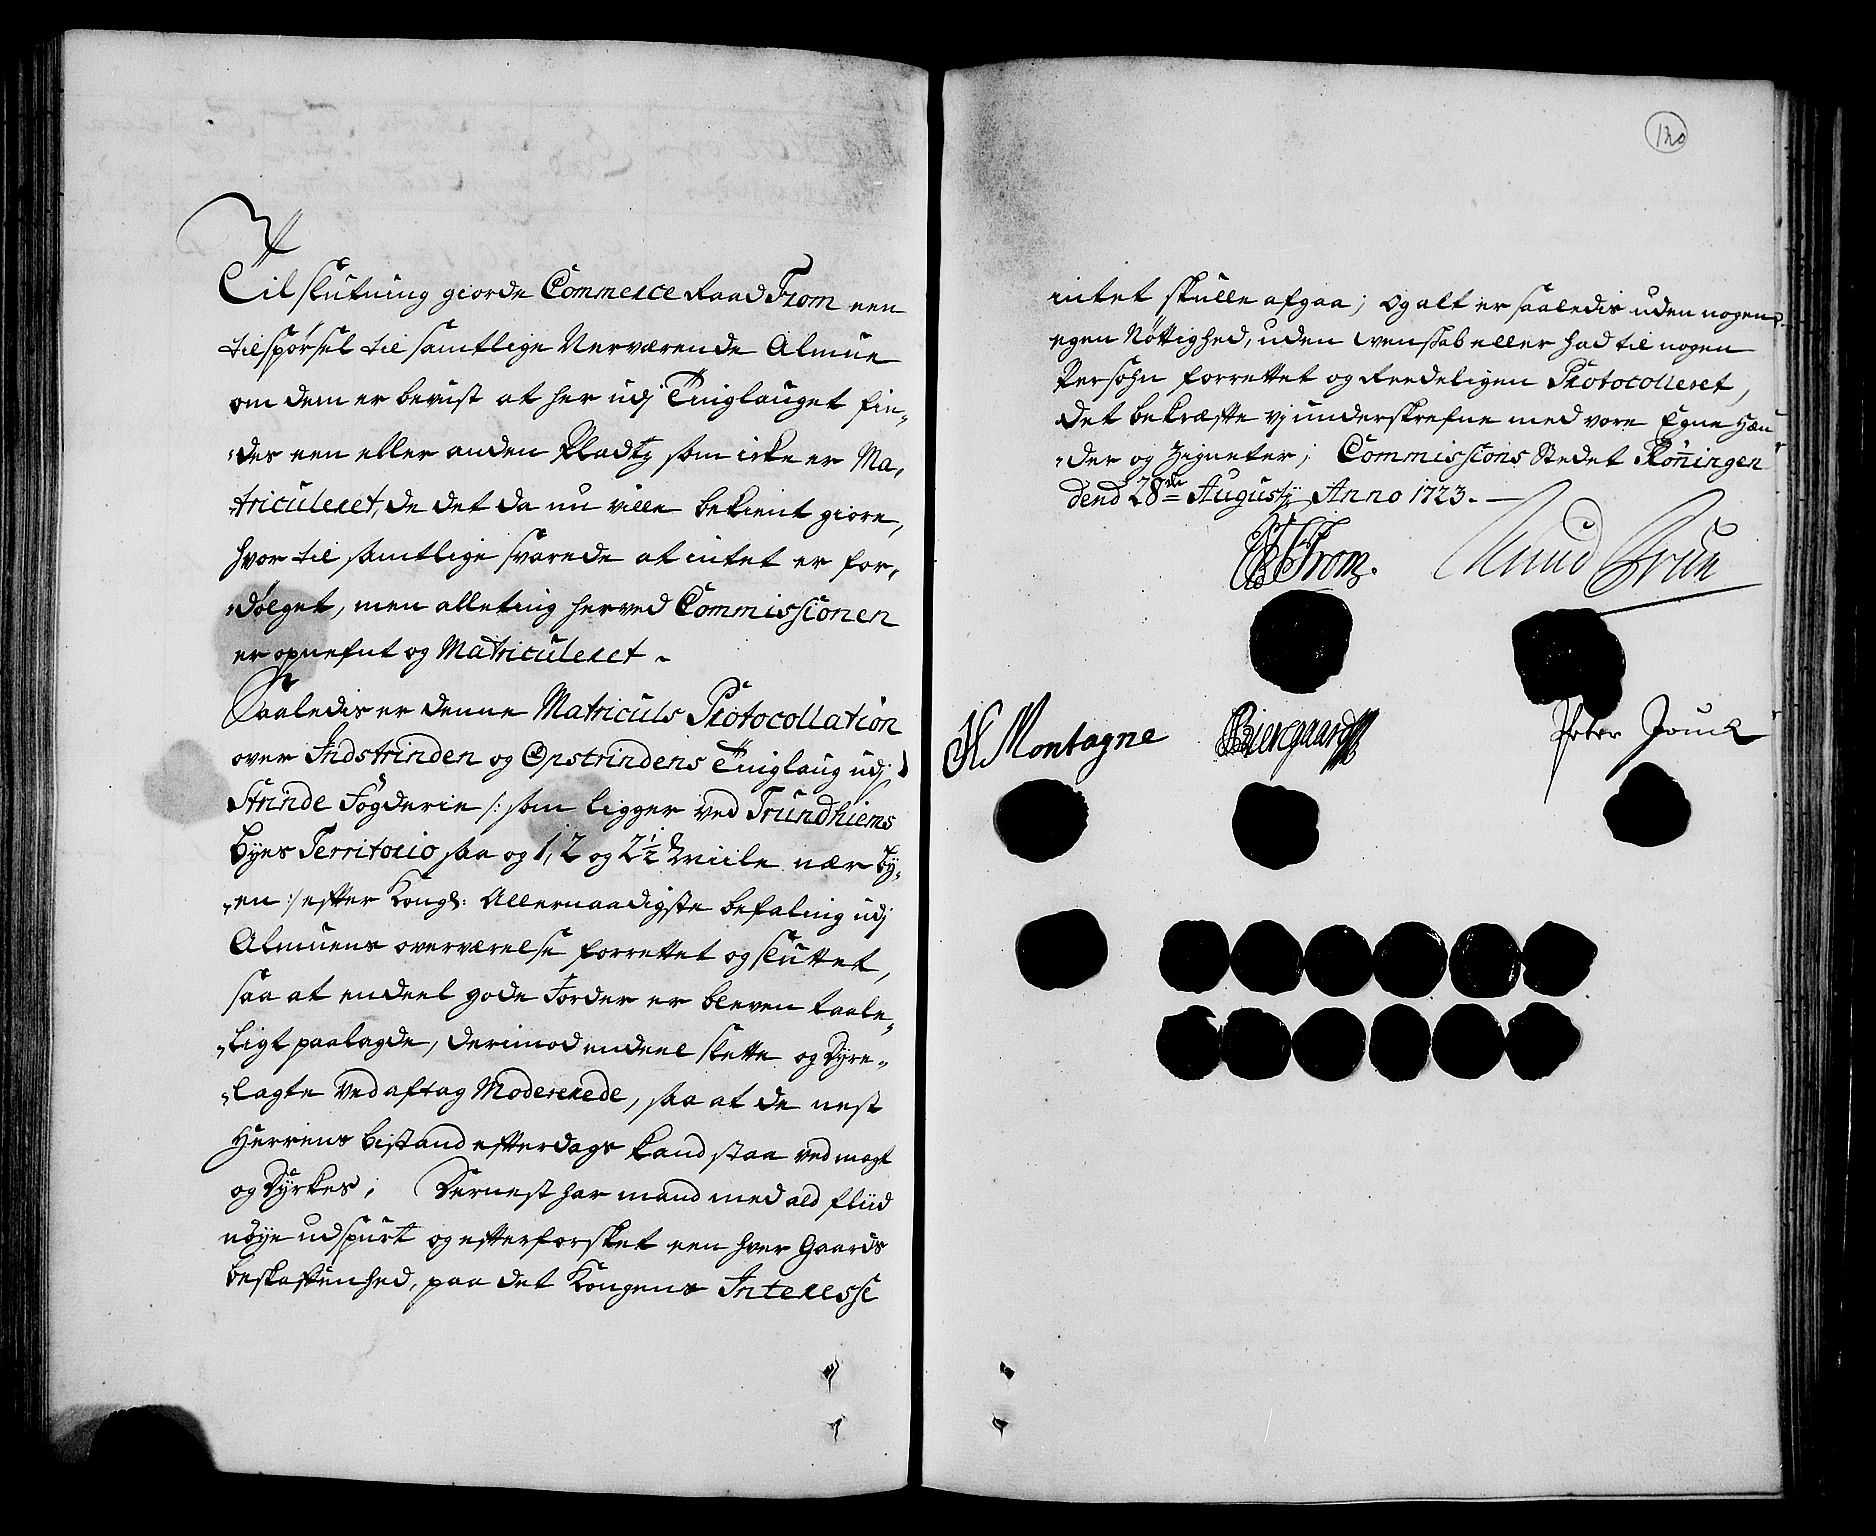 Til slutning giorde Commerce Raad From een
tilspørsel til samtlige Nerværende Almue
om dem er bevust at her udj Tinglauget fin,
,des een eller anden Pladtz som icke er Ma,
,triculeret, de det da nu ville bekient giøre,
hvor til samtlige svarede at intet er for,
,dølget, men alleting herved Commissionen
er opnefnt og Matriculeret.
Saaledis er denne Matriculs Protocollation
over Indstrinden og Opstrindens Tinglaug udj
Strinde Fogderie /: som ligger ved Trundhiems
Byes Territorio saa og 1, 2 og 2½ Miile nær By,
,en :/ efter Kongl: Allernaadigste befaling udj
Almuens overværelse forrettet og sluttet,
saa at endeel gode Jorder er bleven taale,
,ligt paalagde, derimod endeel slette og Dyre,
,lagte ved aftag Modererede, saa at de nest
Herrens bistand efterdags kand staa ved magt
og Dyrkes; Dernest har mand med ald fliid
nøye udspurt og efterforsket een hver Gaards
beskaffenhed, paa det Kongens Interesse
120
intet skulle afgaa; og alt er saaledis uden nogen
egen Nøttighed, uden wenskab eller had til nogen
Persohn forrettet og Reedeligen Protocolleret,
det bekræfte vj underskrefne med vore Egne Hæn
,der og Zigneter; Commissions Stedet Rønningen
dend 28de Augustj Anno 1723.
From. Knud Bruun
H Montagne Biergaard Peter Jouck